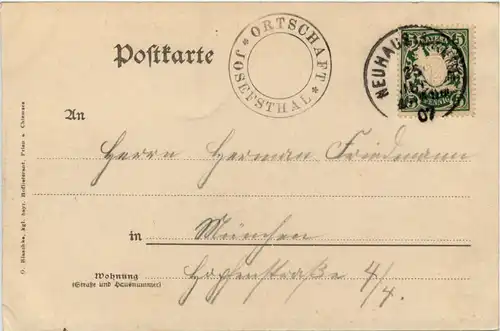 Postkarte
* ORTSCHAFT * JOSEFSTHAL
NEUHAUS
07
BAYERN
5 5
PFENNIG
An
Herrn Herman Friedmann
in München
Wohnung
(Straße und Hausnummer)
Hopfenstraße 4/4.
kgl. bayr. Hoflieferant, Prien a. Chiemsee